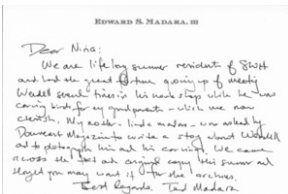 EDWARD S. MADARA, III
Dear Nina:
We are life long summer resident of SWH
and had the great fortune growing up of meeting
Wendell several times in his work shop while he was
carving birds for my grandparents - which we now
cherish. My mother - Linda Madara - was asked by
Downeast Magazine to write a story about Wendell
and to photograph him and his carvings. We came
across the text and original copy this summer and
thought you may want it for the archives.
Best Regards, Tad Madara